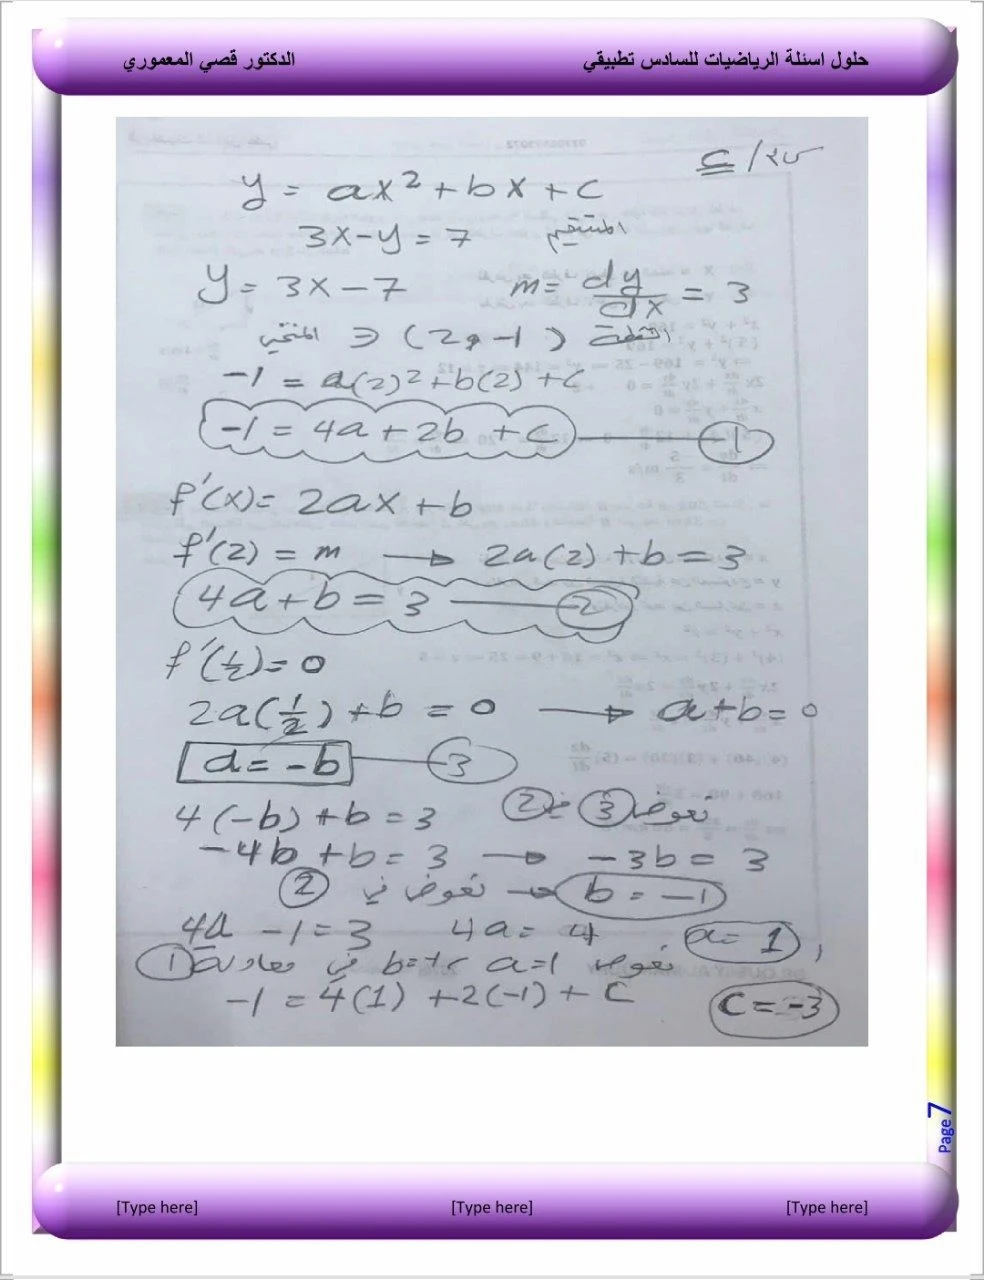 حلول اسئلة الرياضيات للسادس تطبيقي
الدكتور قصي المعموري
y = ax² + bx + c
المستقيم 3x - y = 7
y = 3x - 7 m = dy/dx = 3
النقطة (2, -1) ∈ المنحني
-1 = a(2)² + b(2) + c
-1 = 4a + 2b + c ①
f'(x) = 2ax + b
f'(2) = m → 2a(2) + b = 3
4a + b = 3 ②
f'(1/2) = 0
2a(1/2) + b = 0 → a + b = 0
a = -b ③
نعوض ③ في ② 4(-b) + b = 3
-4b + b = 3 → -3b = 3
b = -1 → نعوض في ②
4a - 1 = 3 4a = 4 a = 1
نعوض a=1 في معادلة ①
-1 = 4(1) + 2(-1) + c c = -3
Page 7
[Type here] [Type here] [Type here]